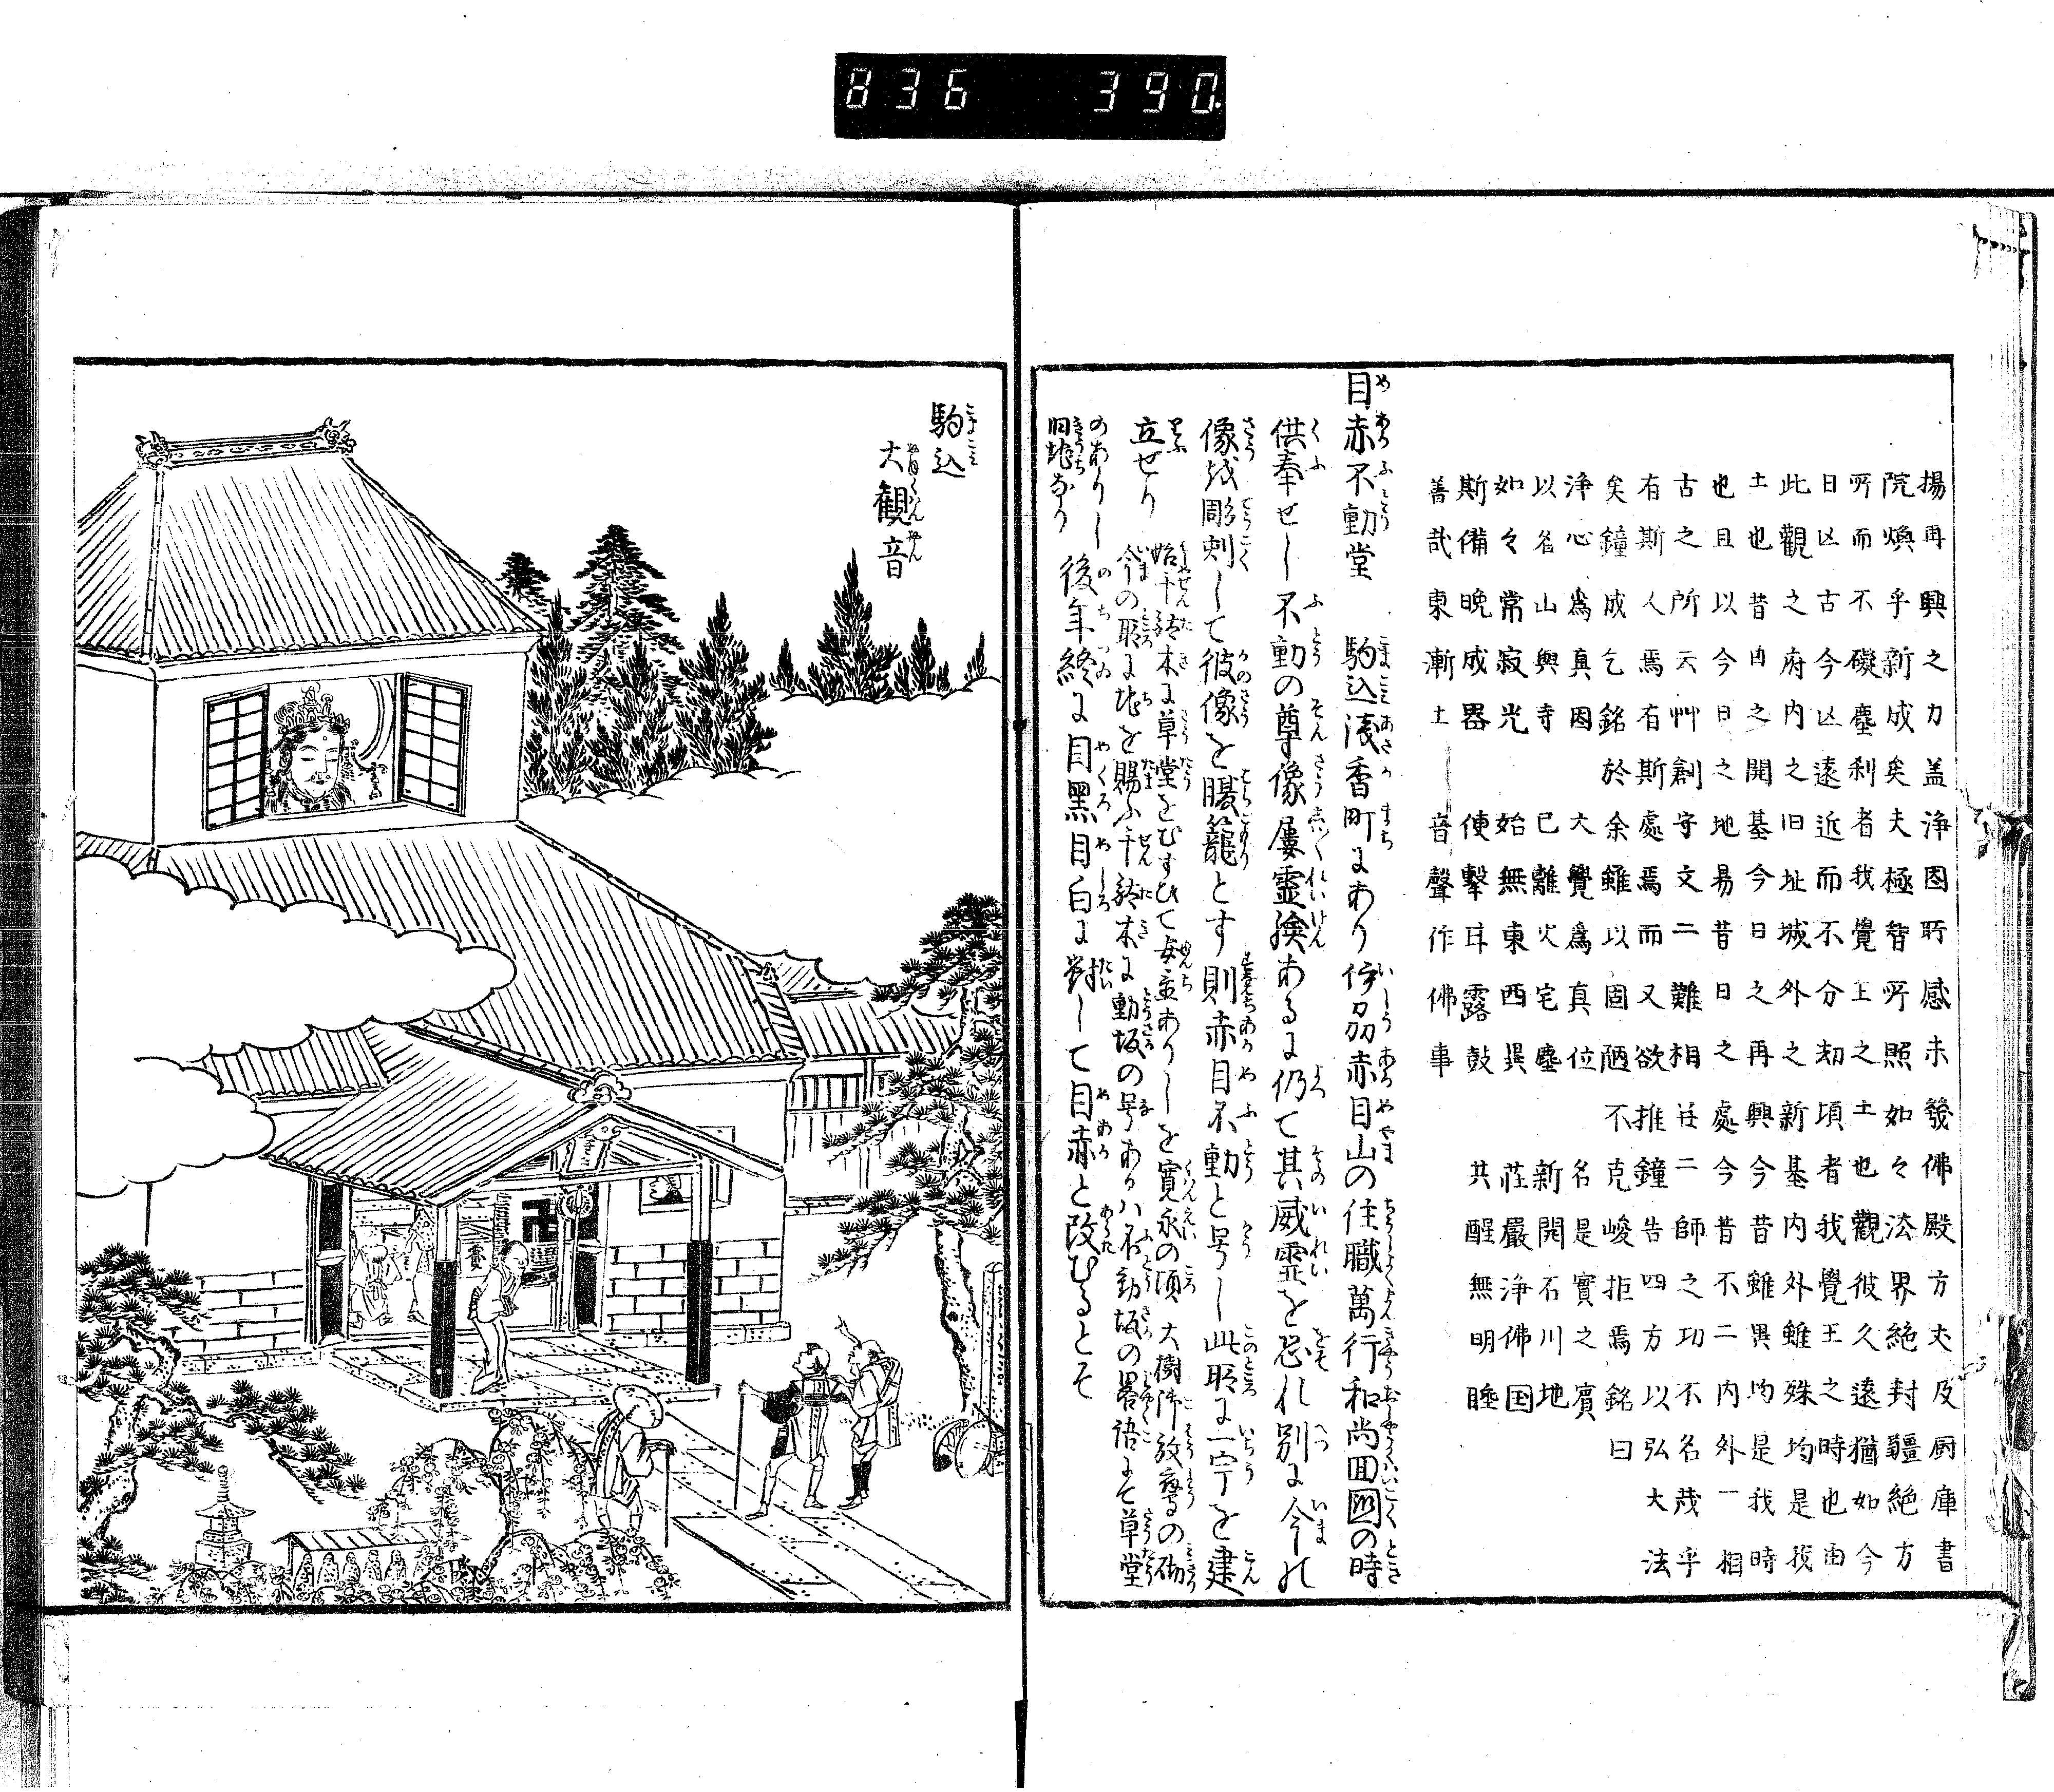 836 390
揚再興之力盖浄因所感未幾佛殿方丈及厨庫書
院煥乎新成矣夫極智所照如々法界絶封疆絶方
所而不礙塵刹者我覺王之土也觀彼久遠猶如今
日凶古今凶遠近而不分劫頃者我覺王之時也由
此觀之府内之旧址城外之新基内外雖殊均是我
土也昔日之開基今日之再興今昔雖異均是我時
也且以今日之地易昔日之處今昔不二内外一相
古之所云艸創守文二難相並二師之功不名茂乎
有斯人焉有斯處焉而又欲推鐘告四方以弘大法
矣鐘成乞銘於余雖以固陋不克峻拒焉銘曰
浄心爲真因 大覺爲真位 名是實之賓
以名山與寺 已離火宅塵 新開石川地
如々常寂光 始無東西異 荘嚴浄佛国
斯備晩成器 使擊耳露鼓 共醒無明睡
善哉東漸土 音聲作佛事
目赤不動堂 駒込浅香町にあり伊刕赤目山の住職萬行和尚回國の時
供奉せし不動の尊像屢靈験あるに仍て其威霊を恐れ別に今の
像を彫刻して彼像を腹籠とす則赤目不動と号し此所に一宇を建
立せり 始千駄木に草堂をむすひて安置ありしを寛永の頃大樹御放鷹の砌
今の所に地を賜ふ千駄木に動坂の号あるハ不動坂の畧語にて草堂
のありし旧地なり 後年終に目黒目白に對して目赤と改むるとそ
駒込
大観音
賣